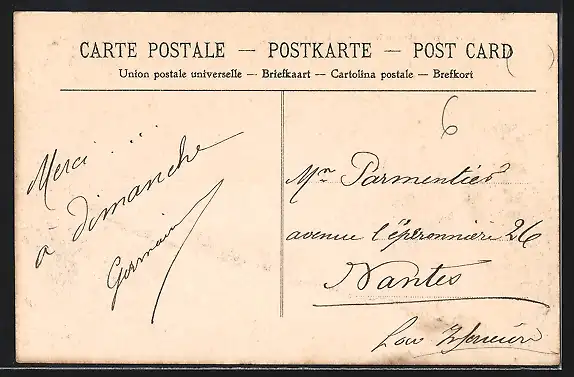 CARTE POSTALE — POSTKARTE — POST CARD
Union postale universelle — Briefkaart — Cartolina postale — Brefkort
Merci ...
a dimanche
Germain
6
Mr Parmentier
avenue l'éperonnière 26
Nantes
Loir Inferieure